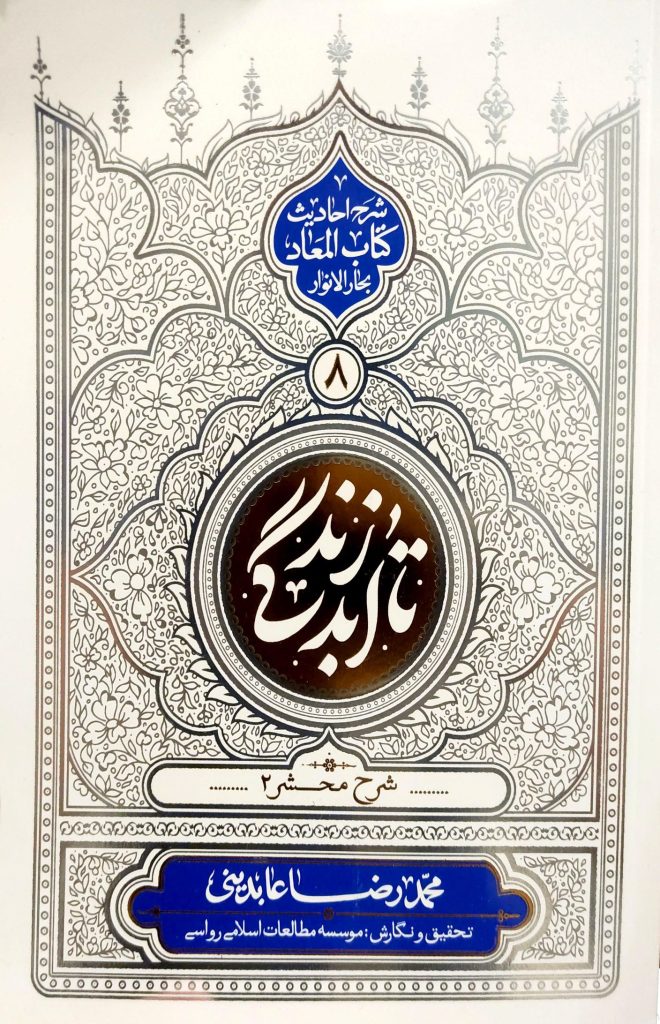 شرح احادیث
کتاب المعاد
بحارالانوار
۸
تا ابد زندگی
شرح محشر۲
محمدرضا عابدینی
تحقیق و نگارش: موسسه مطالعات اسلامی رواسی